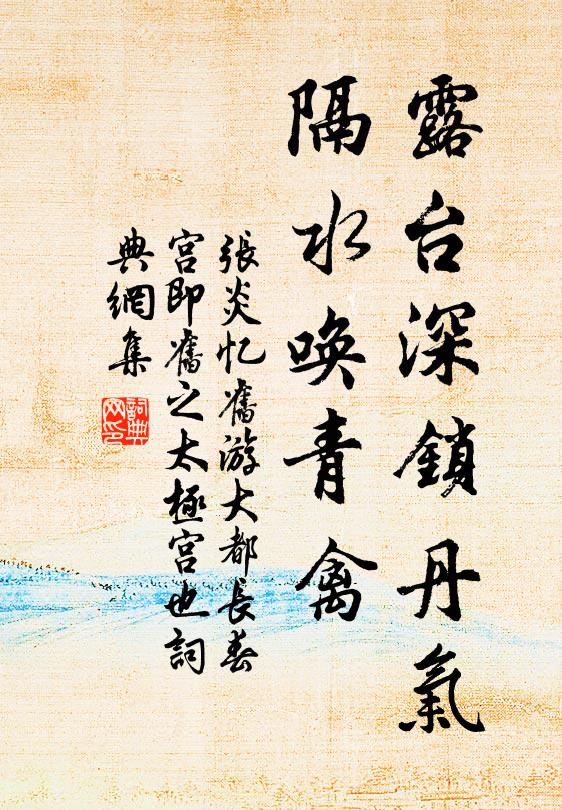 露台深鎖丹氣
隔水唤青禽
張炎忆舊游大都長春
宮即舊之太極宮也詞
典網集
詞典
网印